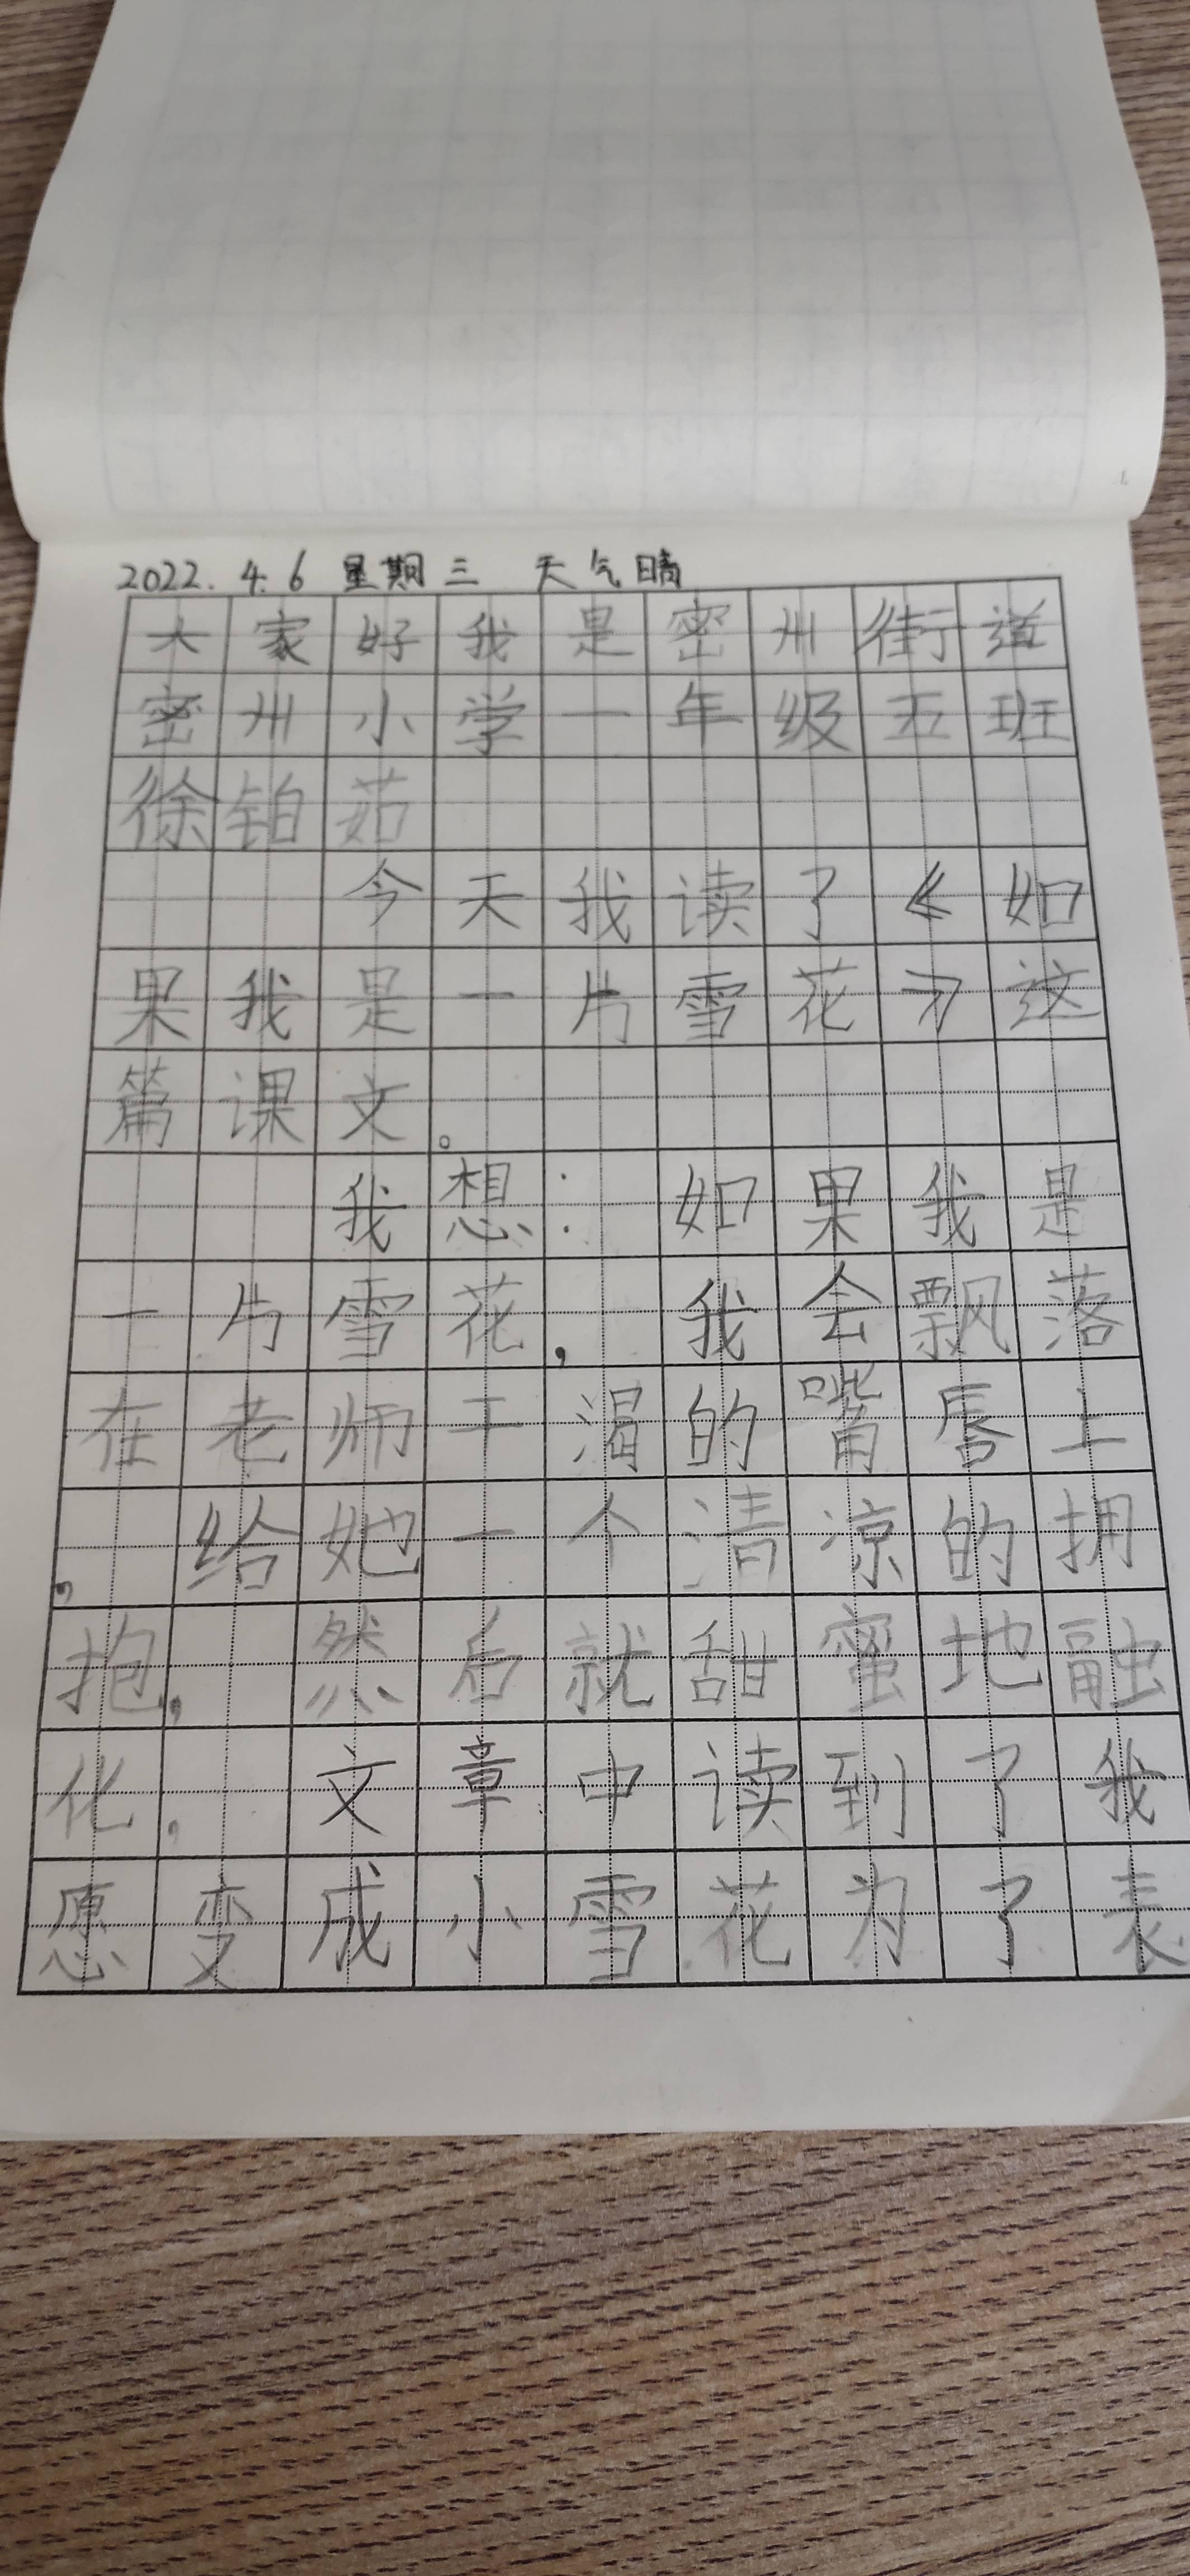 2022.4.6 星期三 天气晴
大家好我是密州街道
密州小学一年级五班
徐铂茹
今天我读了《如
果我是一片雪花》这
篇课文。
我想:如果我是
一片雪花,我会飘落
在老师干渴的嘴唇上
,给她一个清凉的拥
抱,然后就甜蜜地融
化.文章中读到了我
愿变成小雪花为了表